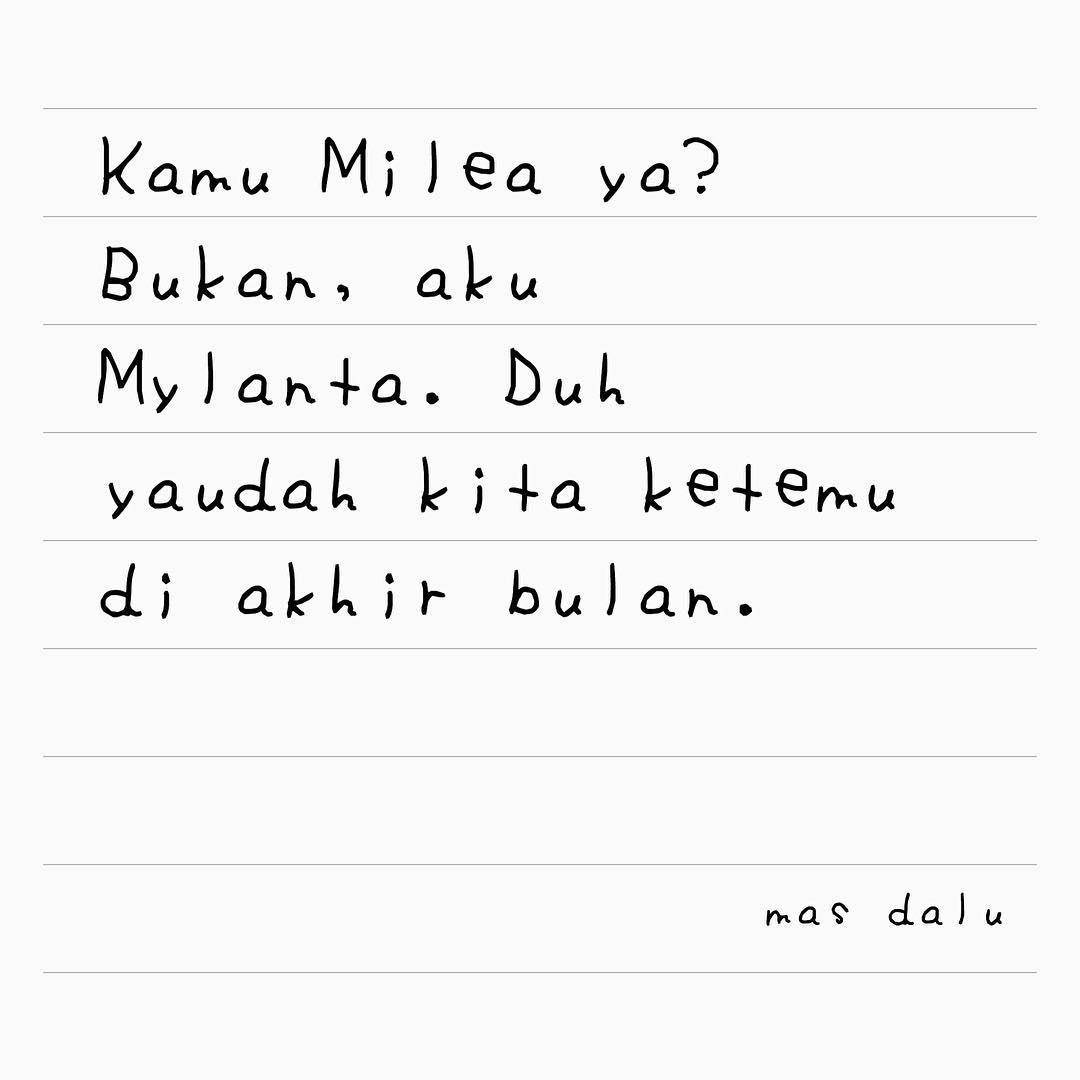 Kamu Milea ya?
Bukan, aku
Mylanta. Duh
yaudah kita ketemu
di akhir bulan.
mas dalu